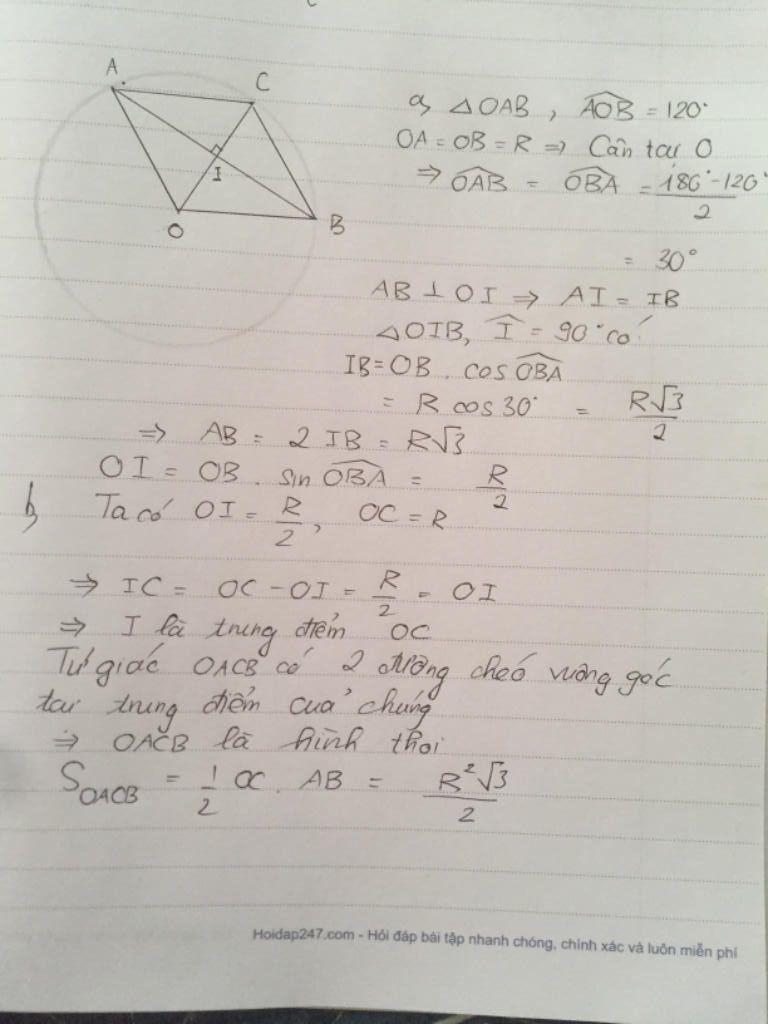 A
C
I
O
B
a, △OAB , \widehat{AOB} = 120°
OA = OB = R => Cân tại O
=> \widehat{OAB} = \widehat{OBA} = \frac{180° - 120°}{2}
= 30°
AB ⊥ OI => AI = IB
△OIB, \widehat{I} = 90° có
IB = OB . cos \widehat{OBA}
= R cos 30° = \frac{R√3}{2}
=> AB = 2 IB = R√3
OI = OB . sin \widehat{OBA} = \frac{R}{2}
b, Ta có OI = \frac{R}{2}, OC = R
=> IC = OC - OI = \frac{R}{2} = OI
=> I là trung điểm OC
Tứ giác OACB có 2 đường chéo vuông góc
tại trung điểm của chúng
=> OACB là hình thoi
S_{OACB} = \frac{1}{2} OC . AB = \frac{R²√3}{2}
Hoidap247.com - Hỏi đáp bài tập nhanh chóng, chính xác và luôn miễn phí